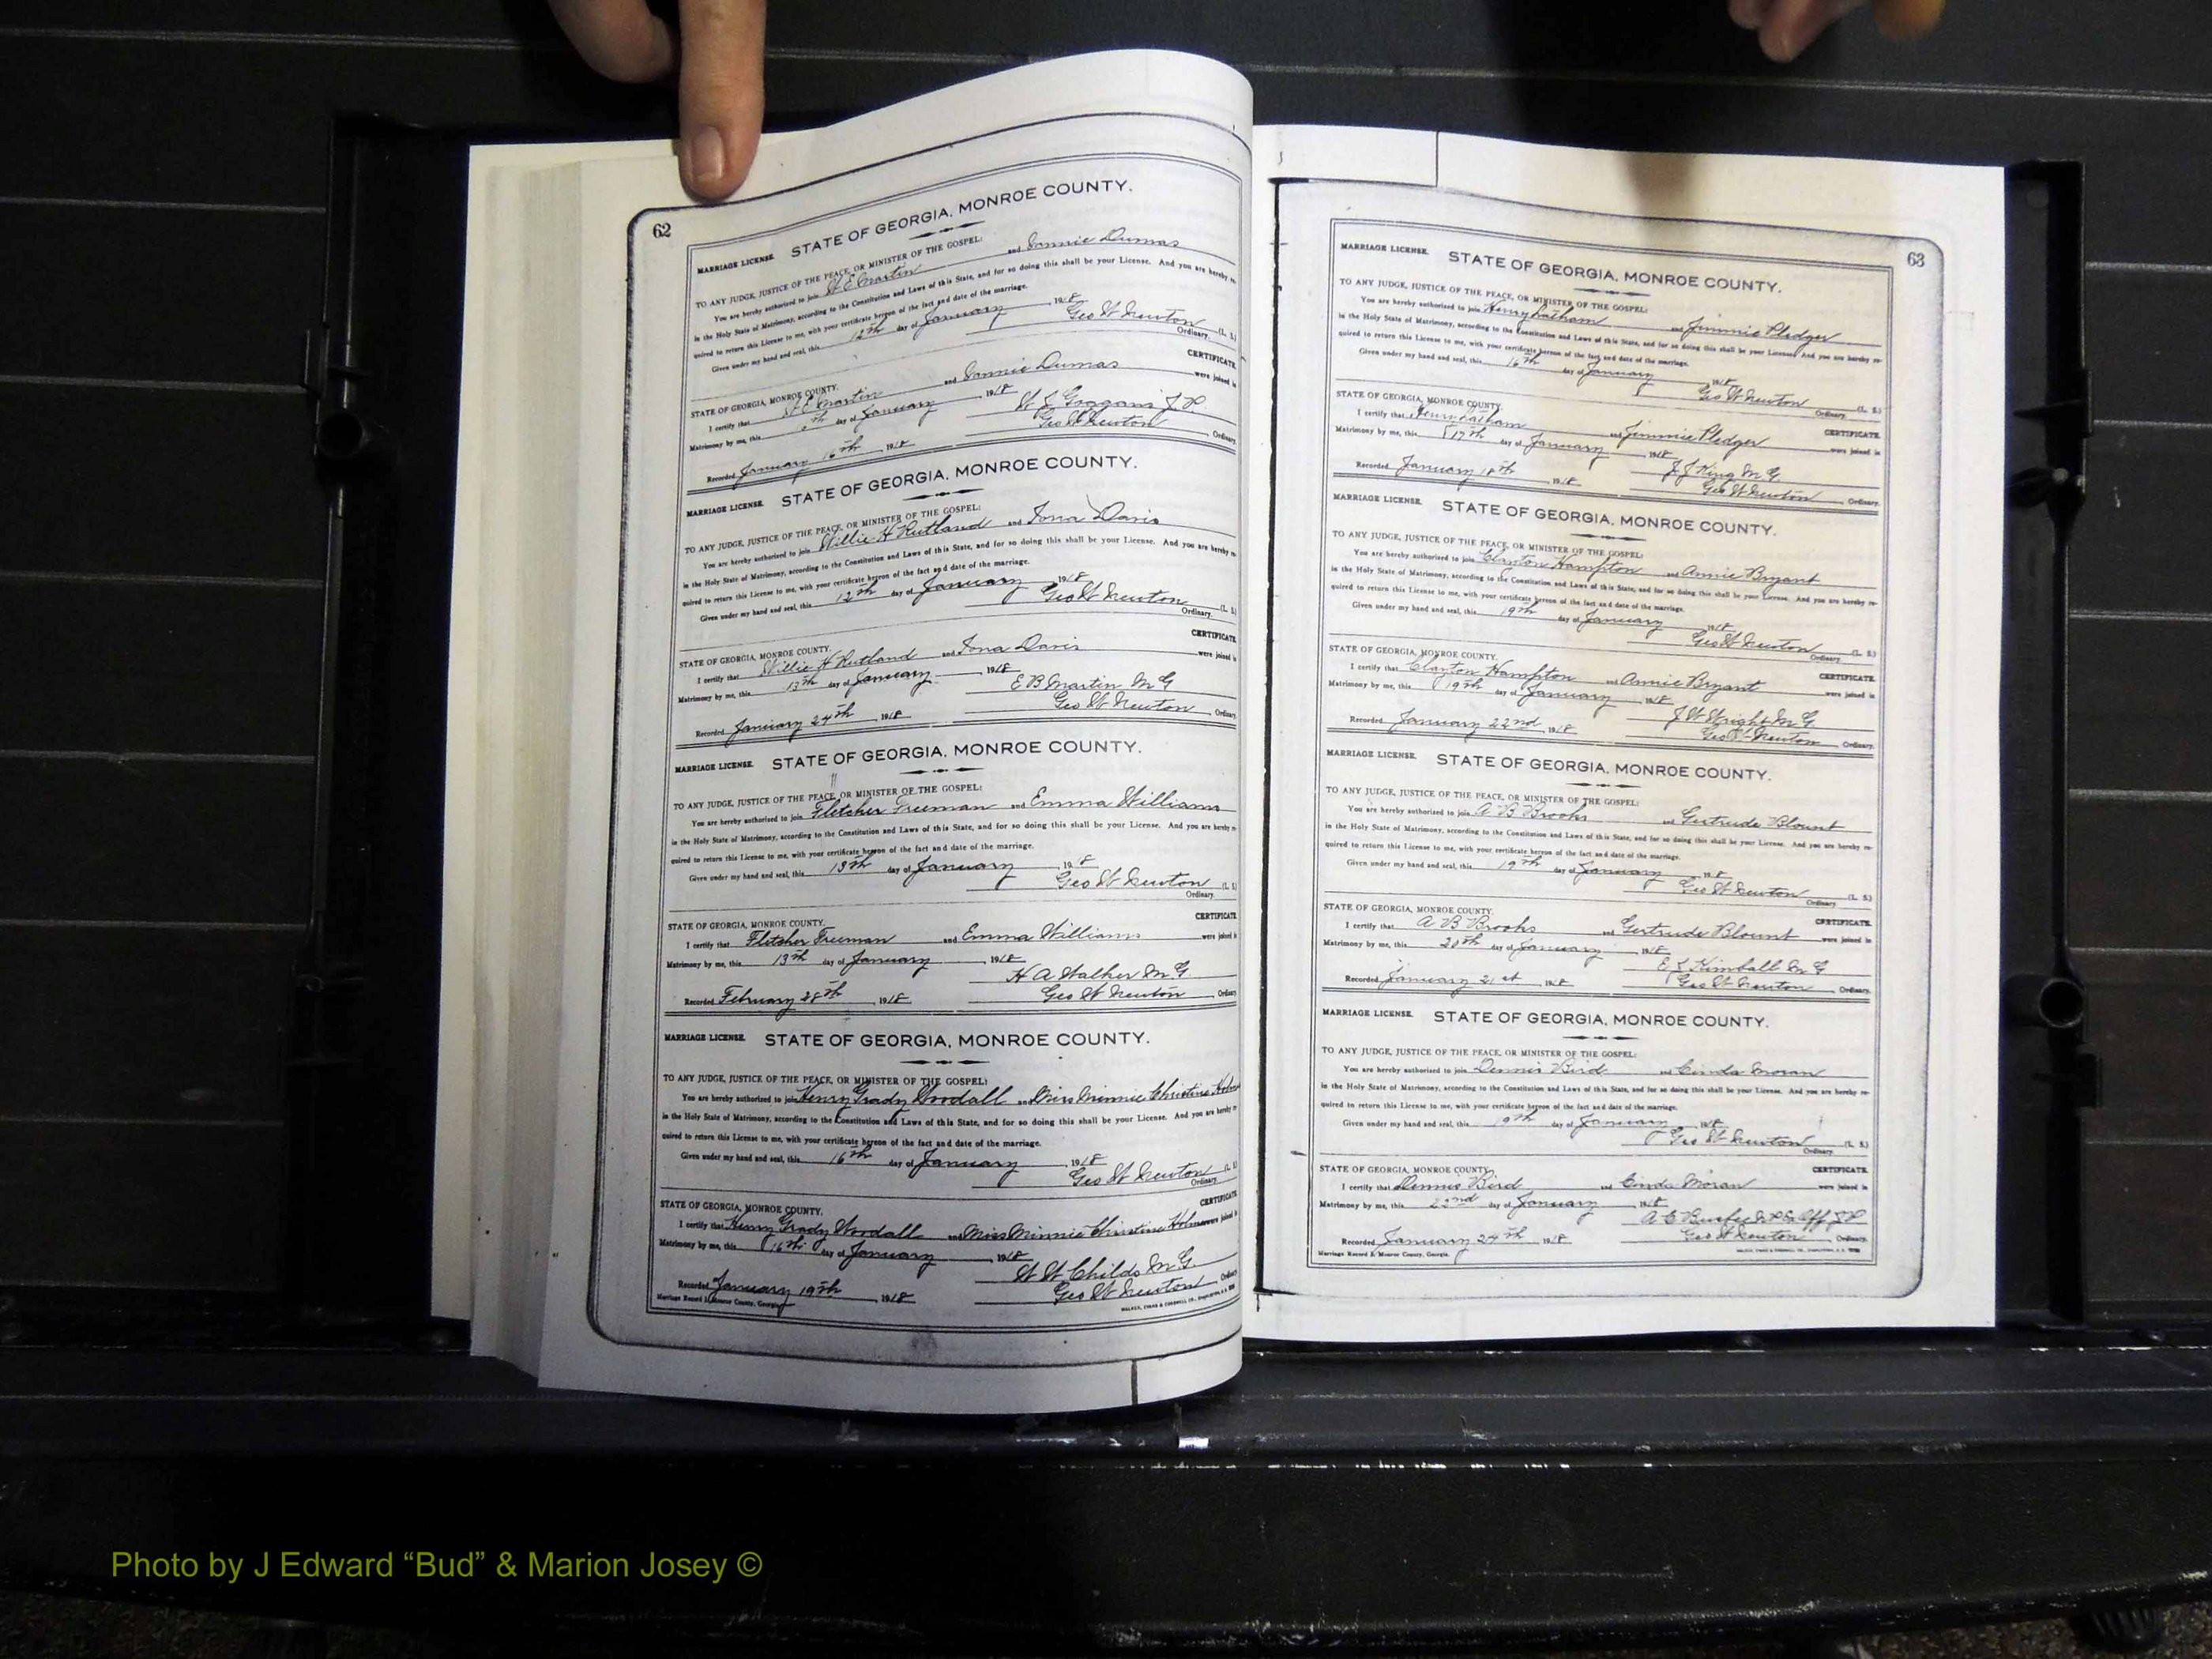 62
MARRIAGE LICENSE. STATE OF GEORGIA, MONROE COUNTY.
TO ANY JUDGE, JUSTICE OF THE PEACE, OR MINISTER OF THE GOSPEL:
You are hereby authorized to join W E Martin and Dumas
in the Holy State of Matrimony, according to the Constitution and Laws of this State, and for so doing this shall be your License. And you are hereby re-
quired to return this License to me, with your certificate hereon of the fact and date of the marriage.
Given under my hand and seal, this 12th day of January 1918
Geo W Newton (L. S.)
Ordinary.
STATE OF GEORGIA, MONROE COUNTY. CERTIFICATE.
I certify that W E Martin and Dumas were joined in
Matrimony by me, this day of January 1918
W J J. P.
Recorded January 16th 1918 Geo W Newton Ordinary.
MARRIAGE LICENSE. STATE OF GEORGIA, MONROE COUNTY.
TO ANY JUDGE, JUSTICE OF THE PEACE, OR MINISTER OF THE GOSPEL:
You are hereby authorized to join Willie H Rutland and Iona Davis
in the Holy State of Matrimony, according to the Constitution and Laws of this State, and for so doing this shall be your License. And you are hereby re-
quired to return this License to me, with your certificate hereon of the fact and date of the marriage.
Given under my hand and seal, this 12th day of January 1918
Geo W Newton (L. S.)
Ordinary.
STATE OF GEORGIA, MONROE COUNTY. CERTIFICATE.
I certify that Willie H Rutland and Iona Davis were joined in
Matrimony by me, this 13th day of January 1918
E B Martin M G
Recorded January 24th 1918 Geo W Newton Ordinary.
MARRIAGE LICENSE. STATE OF GEORGIA, MONROE COUNTY.
TO ANY JUDGE, JUSTICE OF THE PEACE, OR MINISTER OF THE GOSPEL:
You are hereby authorized to join Fletcher Freeman and Emma Williams
in the Holy State of Matrimony, according to the Constitution and Laws of this State, and for so doing this shall be your License. And you are hereby re-
quired to return this License to me, with your certificate hereon of the fact and date of the marriage.
Given under my hand and seal, this 13th day of January 1918
Geo W Newton (L. S.)
Ordinary.
STATE OF GEORGIA, MONROE COUNTY. CERTIFICATE.
I certify that Fletcher Freeman and Emma Williams were joined in
Matrimony by me, this 13th day of January 1918
H A Walker M G
Recorded February 28th 1918 Geo W Newton Ordinary.
MARRIAGE LICENSE. STATE OF GEORGIA, MONROE COUNTY.
TO ANY JUDGE, JUSTICE OF THE PEACE, OR MINISTER OF THE GOSPEL:
You are hereby authorized to join Henry Grady Woodall and Miss Minnie Christine
in the Holy State of Matrimony, according to the Constitution and Laws of this State, and for so doing this shall be your License. And you are hereby re-
quired to return this License to me, with your certificate hereon of the fact and date of the marriage.
Given under my hand and seal, this 16th day of January 1918
Geo W Newton (L. S.)
Ordinary.
STATE OF GEORGIA, MONROE COUNTY. CERTIFICATE.
I certify that Henry Grady Woodall and Miss Minnie Christine were joined in
Matrimony by me, this 16th day of January 1918
W W Childs M G.
Recorded January 19th 1918 Geo W Newton Ordinary.
Marriage Record Monroe County, Georgia
63
MARRIAGE LICENSE. STATE OF GEORGIA, MONROE COUNTY.
TO ANY JUDGE, JUSTICE OF THE PEACE, OR MINISTER OF THE GOSPEL:
You are hereby authorized to join Henry Latham and Jimmie Pledger
in the Holy State of Matrimony, according to the Constitution and Laws of this State, and for so doing this shall be your License. And you are hereby re-
quired to return this License to me, with your certificate hereon of the fact and date of the marriage.
Given under my hand and seal, this 16th day of January 1918
Geo W Newton (L. S.)
Ordinary.
STATE OF GEORGIA, MONROE COUNTY. CERTIFICATE.
I certify that Henry Latham and Jimmie Pledger were joined in
Matrimony by me, this 17th day of January 1918
J J King M G
Recorded January 18th 1918 Geo W Newton Ordinary.
MARRIAGE LICENSE. STATE OF GEORGIA, MONROE COUNTY.
TO ANY JUDGE, JUSTICE OF THE PEACE, OR MINISTER OF THE GOSPEL:
You are hereby authorized to join Clayton Hampton and Annie Bryant
in the Holy State of Matrimony, according to the Constitution and Laws of this State, and for so doing this shall be your License. And you are hereby re-
quired to return this License to me, with your certificate hereon of the fact and date of the marriage.
Given under my hand and seal, this 19th day of January 1918
Geo W Newton (L. S.)
Ordinary.
STATE OF GEORGIA, MONROE COUNTY. CERTIFICATE.
I certify that Clayton Hampton and Annie Bryant were joined in
Matrimony by me, this 19th day of January 1918
J W Wright M G
Recorded January 22nd 1918 Geo W Newton Ordinary.
MARRIAGE LICENSE. STATE OF GEORGIA, MONROE COUNTY.
TO ANY JUDGE, JUSTICE OF THE PEACE, OR MINISTER OF THE GOSPEL:
You are hereby authorized to join A B Brooks and Gertrude Blount
in the Holy State of Matrimony, according to the Constitution and Laws of this State, and for so doing this shall be your License. And you are hereby re-
quired to return this License to me, with your certificate hereon of the fact and date of the marriage.
Given under my hand and seal, this 19th day of January 1918
Geo W Newton (L. S.)
Ordinary.
STATE OF GEORGIA, MONROE COUNTY. CERTIFICATE.
I certify that A B Brooks and Gertrude Blount were joined in
Matrimony by me, this 20th day of January 1918
Kimball M G
Recorded January 21st 1918 Geo W Newton Ordinary.
MARRIAGE LICENSE. STATE OF GEORGIA, MONROE COUNTY.
TO ANY JUDGE, JUSTICE OF THE PEACE, OR MINISTER OF THE GOSPEL:
You are hereby authorized to join Dennis Bird and Cinda Moran
in the Holy State of Matrimony, according to the Constitution and Laws of this State, and for so doing this shall be your License. And you are hereby re-
quired to return this License to me, with your certificate hereon of the fact and date of the marriage.
Given under my hand and seal, this 19th day of January 1918
Geo W Newton (L. S.)
Ordinary.
STATE OF GEORGIA, MONROE COUNTY. CERTIFICATE.
I certify that Dennis Bird and Cinda Moran were joined in
Matrimony by me, this day of January 1918
A C
Recorded January 24th 1918 Geo W Newton Ordinary.
Marriage Record Monroe County, Georgia.
Photo by J Edward “Bud” & Marion Josey ©